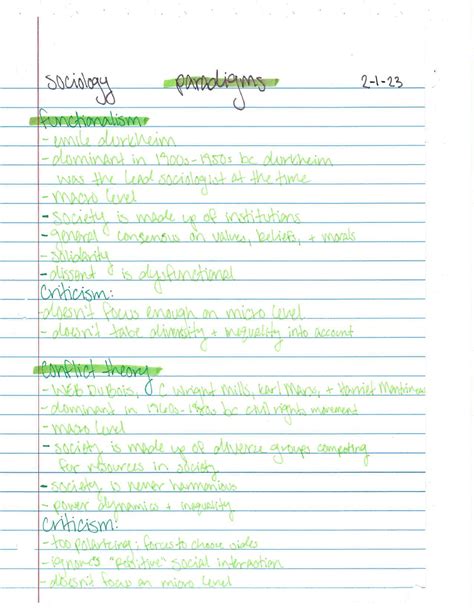 sociology paradigms 2-1-23
functionalism
- emile durkheim
- dominant in 1900s-1950s bc durkheim
was the lead sociologist at the time
- macro level
- society is made up of institutions
- general consensus on values, beliefs, + morals
- solidarity
- dissent is dysfunctional
Criticism:
- doesn't focus enough on micro level
- doesn't take diversity + inequality into account
conflict theory
- WEB DuBois, C Wright Mills, Karl Marx, + Harriet Martineau
- dominant in 1960s- bc civil rights movement
- macro level
- society is made up of diverse groups competing
for resources in society
- society is never harmonious
- power dynamics + inequality
Criticism:
- too polarizing; forces to choose sides
- ignores "positive" social interaction
- doesn't focus on micro level